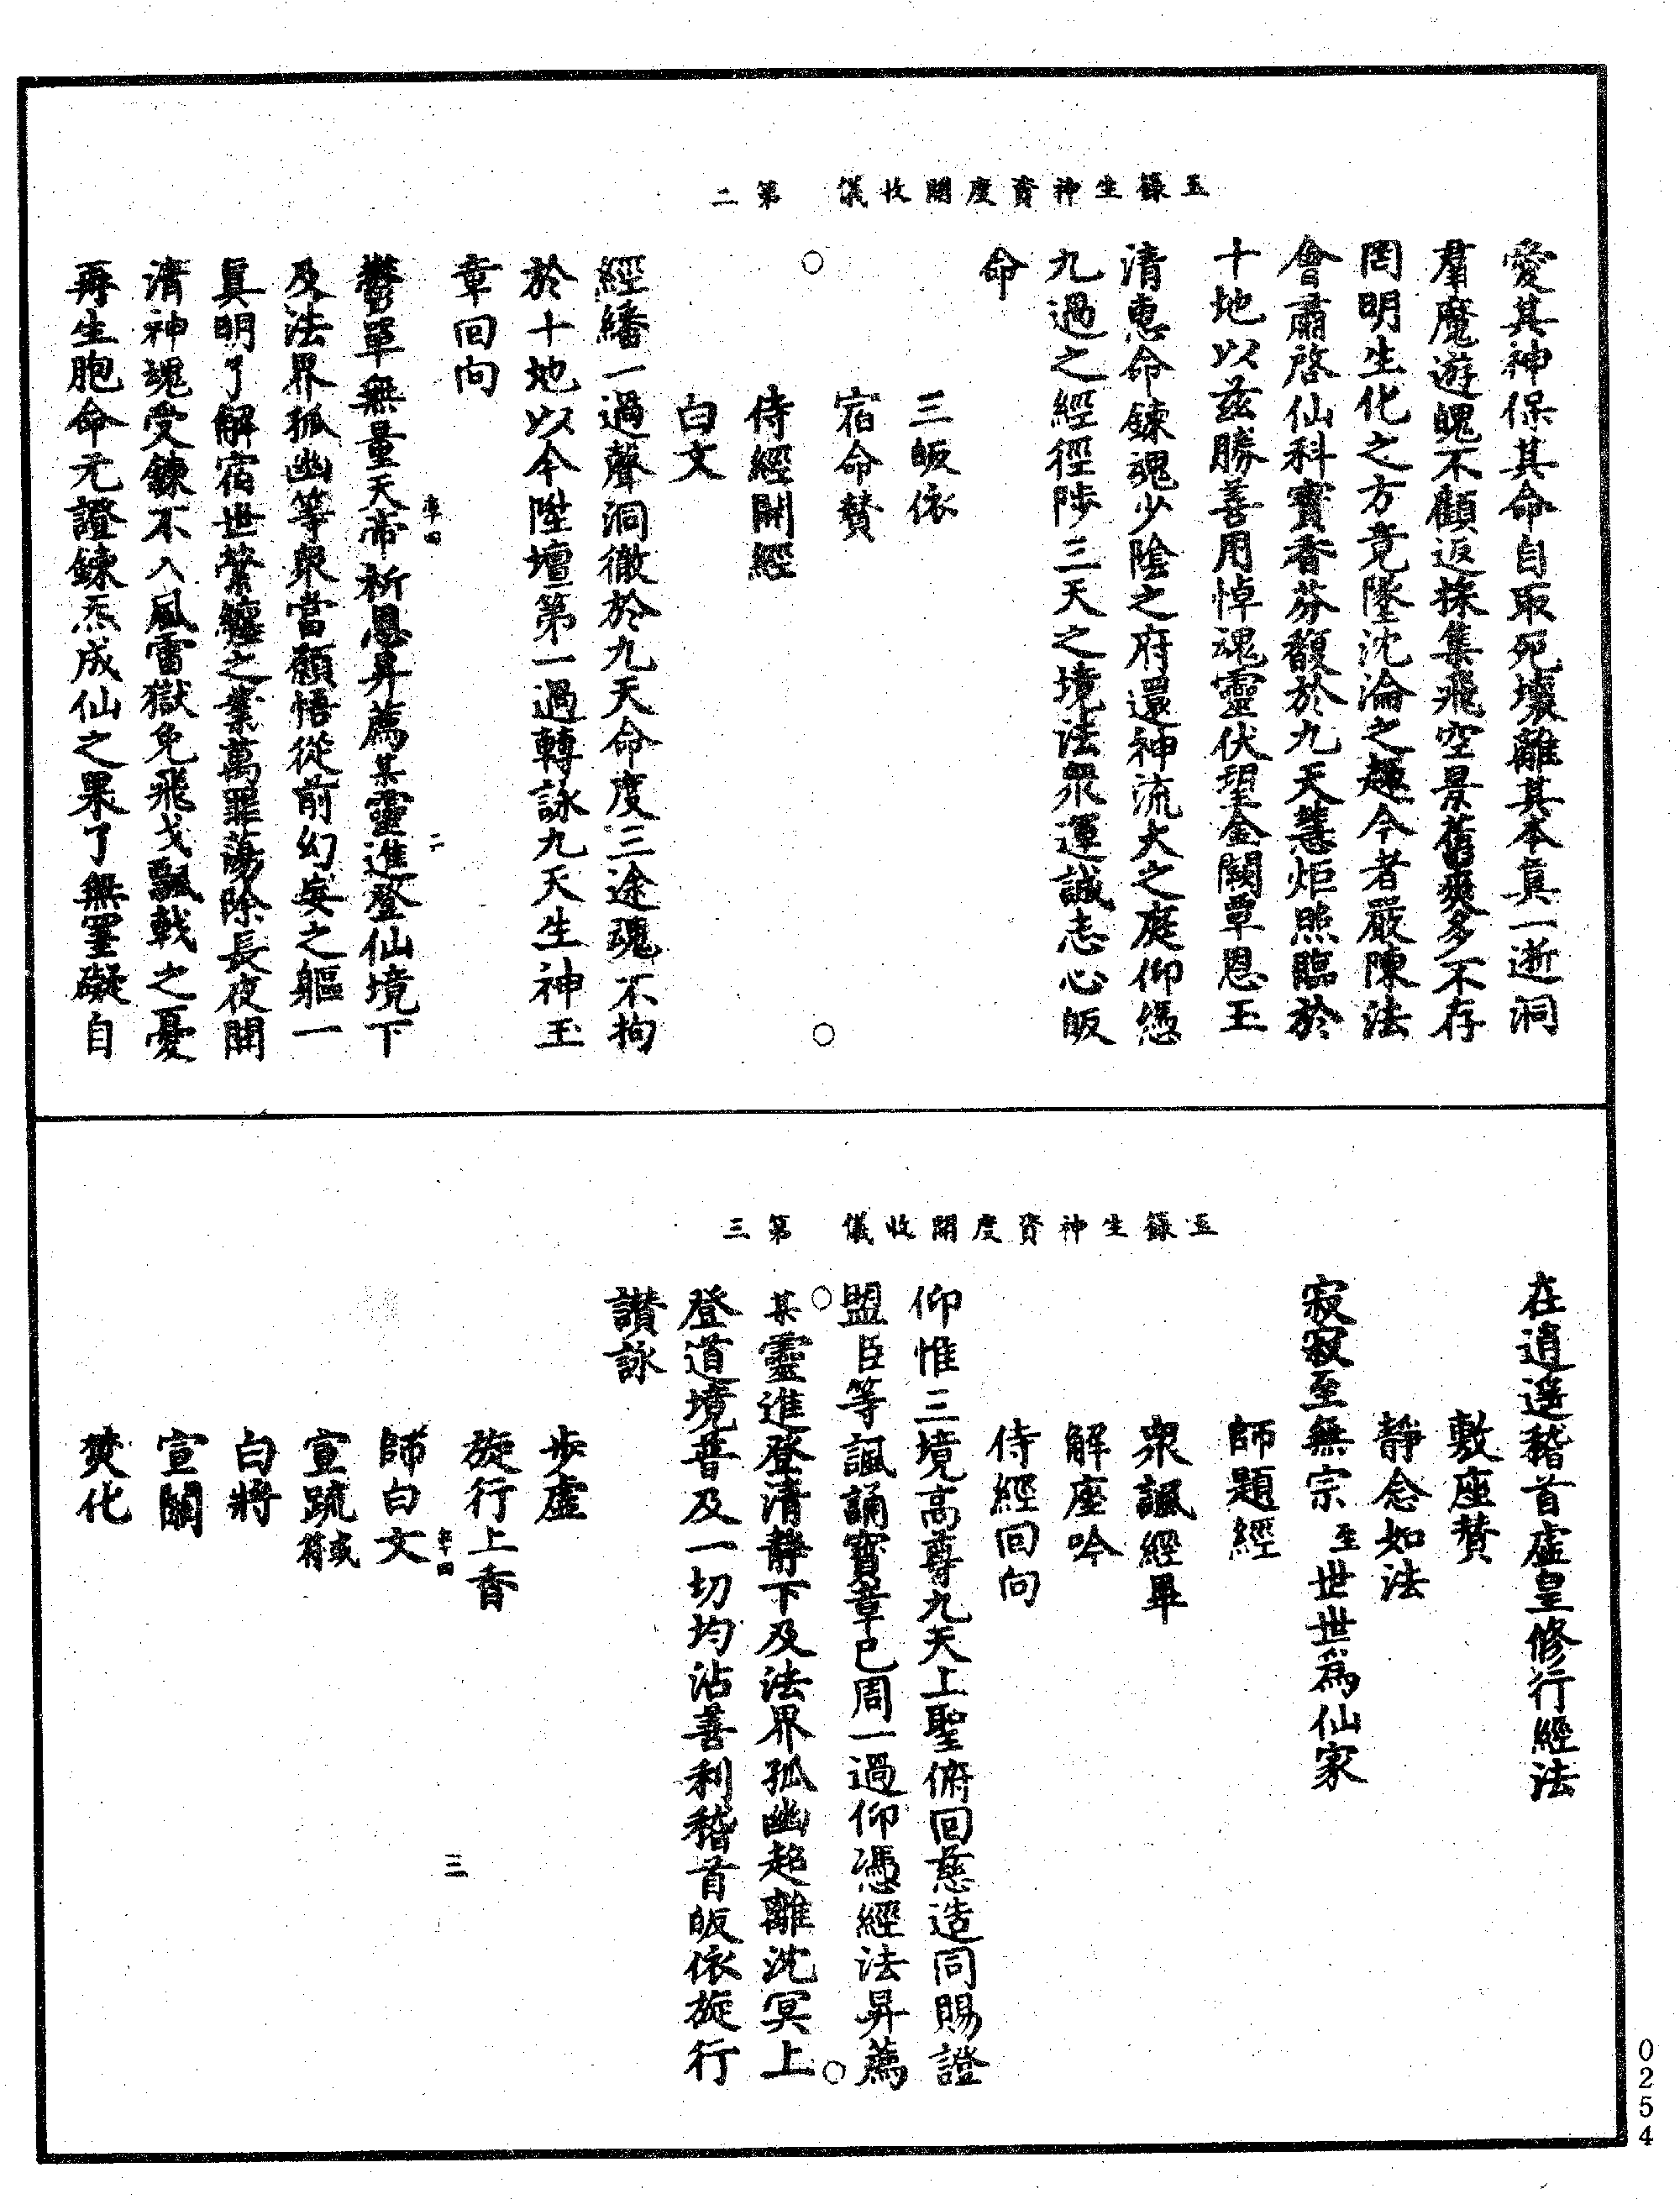 玉籙生神資度開收儀　第二
愛其神保其命自取死壞離其本眞一逝洞
羣魔遊魄不顧返採集飛空景舊爽多不存
罔明生化之方竟墜沈淪之趣今者嚴陳法
會肅啓仙科寳香芬馥於九天慧炬照臨於
十地以兹勝善用悼魂靈伏望金闕覃恩玉
清惠命鍊魂少陰之府還神流火之庭仰憑
九過之經徑陟三天之境法衆運誠志心皈
命
三皈依
宿命贊
侍經開經
白文
經繙一過聲洞徹於九天命度三途魂不拘
於十地以今陞壇第一過轉詠九天生神玉
章回向
鬱單無量天帝祈恩昇薦某靈進登仙境下
及法界孤幽等衆當願悟從前幻妄之軀一
眞明了解宿世縈纏之業萬罪蕩除長夜開
清神魂受鍊不入風雷獄免飛戈飄戟之憂
再生胞命元證鍊炁成仙之果了無罣礙自
玉籙生神資度開收儀　第三
在逍遥稽首虛皇修行經法
敷座贊
靜念如法
寂寂至無宗至世世爲仙家
師題經
衆諷經畢
解座吟
侍經回向
仰惟三境高尊九天上聖俯回慈造同賜證
盟臣等諷誦寳章已周一過仰憑經法昇薦
某靈進登清靜下及法界孤幽超離沈冥上
登道境普及一切均沾善利稽首皈依旋行
讃詠
步虛
旋行上香
師白文
宣䟽或符
白將
宣關
焚化
0254